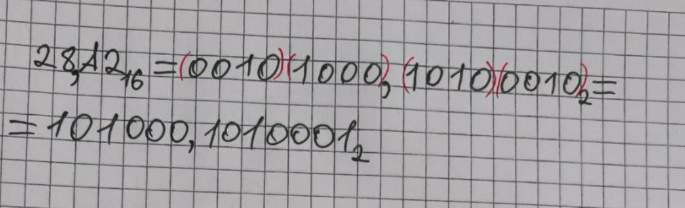 28,A2₁₆ = (0010)(1000), (1010)(0010)₂ =
= 101000, 1010001₂